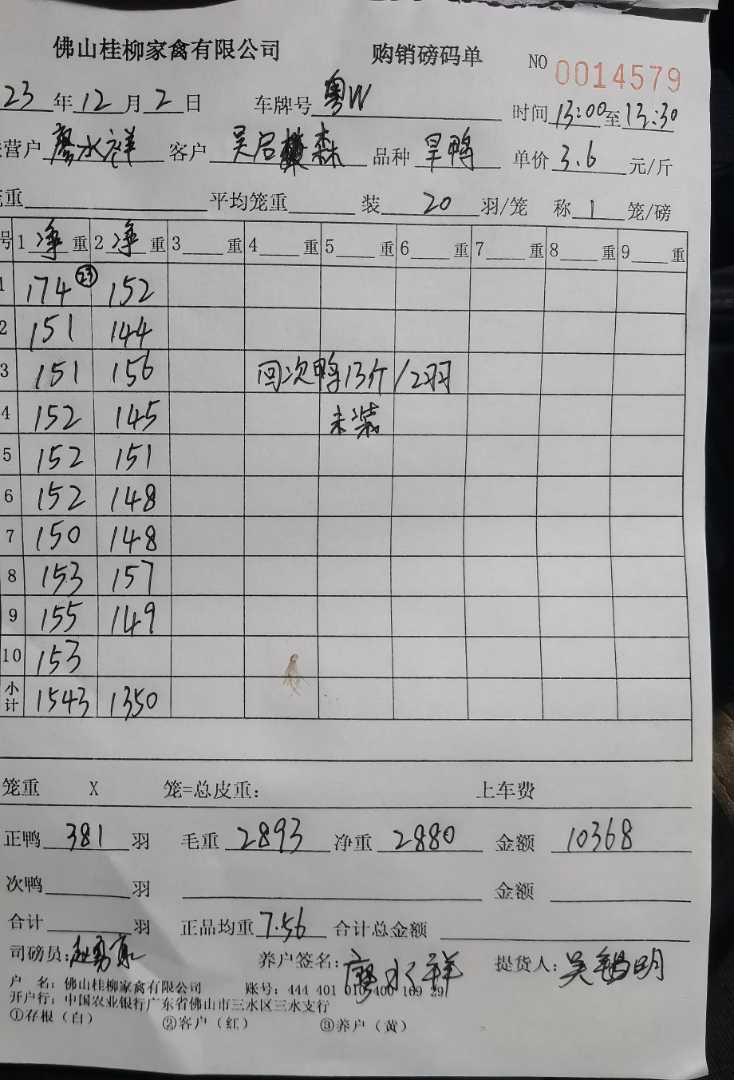 佛山桂柳家禽有限公司 购销磅码单 NO 0014579
23 年 12 月 2 日 车牌号 粤W 时间 13:00 至 13:30
营户 廖水祥 客户 吴启森 品种 旱鸭 单价 3.6 元/斤
重 平均笼重 装 20 羽/笼 称 1 笼/磅
号 1 净 重 2 净 重 3 重 4 重 5 重 6 重 7 重 8 重 9 重
1 174 23 152
2 151 144
3 151 156 回次鸭13斤/2羽
4 152 145 未装
5 152 151
6 152 148
7 150 148
8 153 157
9 155 149
10 153
小计 1543 1350
笼重 X 笼=总皮重: 上车费
正鸭 381 羽 毛重 2893 净重 2880 金额 10368
次鸭 羽 金额
合计 羽 正品均重 7.56 合计总金额
司磅员: 养户签名: 廖水祥 提货人: 吴锡明
户 名: 佛山桂柳家禽有限公司 账号: 444 401 010 400 109 29
开户行: 中国农业银行广东省佛山市三水区三水支行
①存根（白） ②客户（红） ③养户（黄）